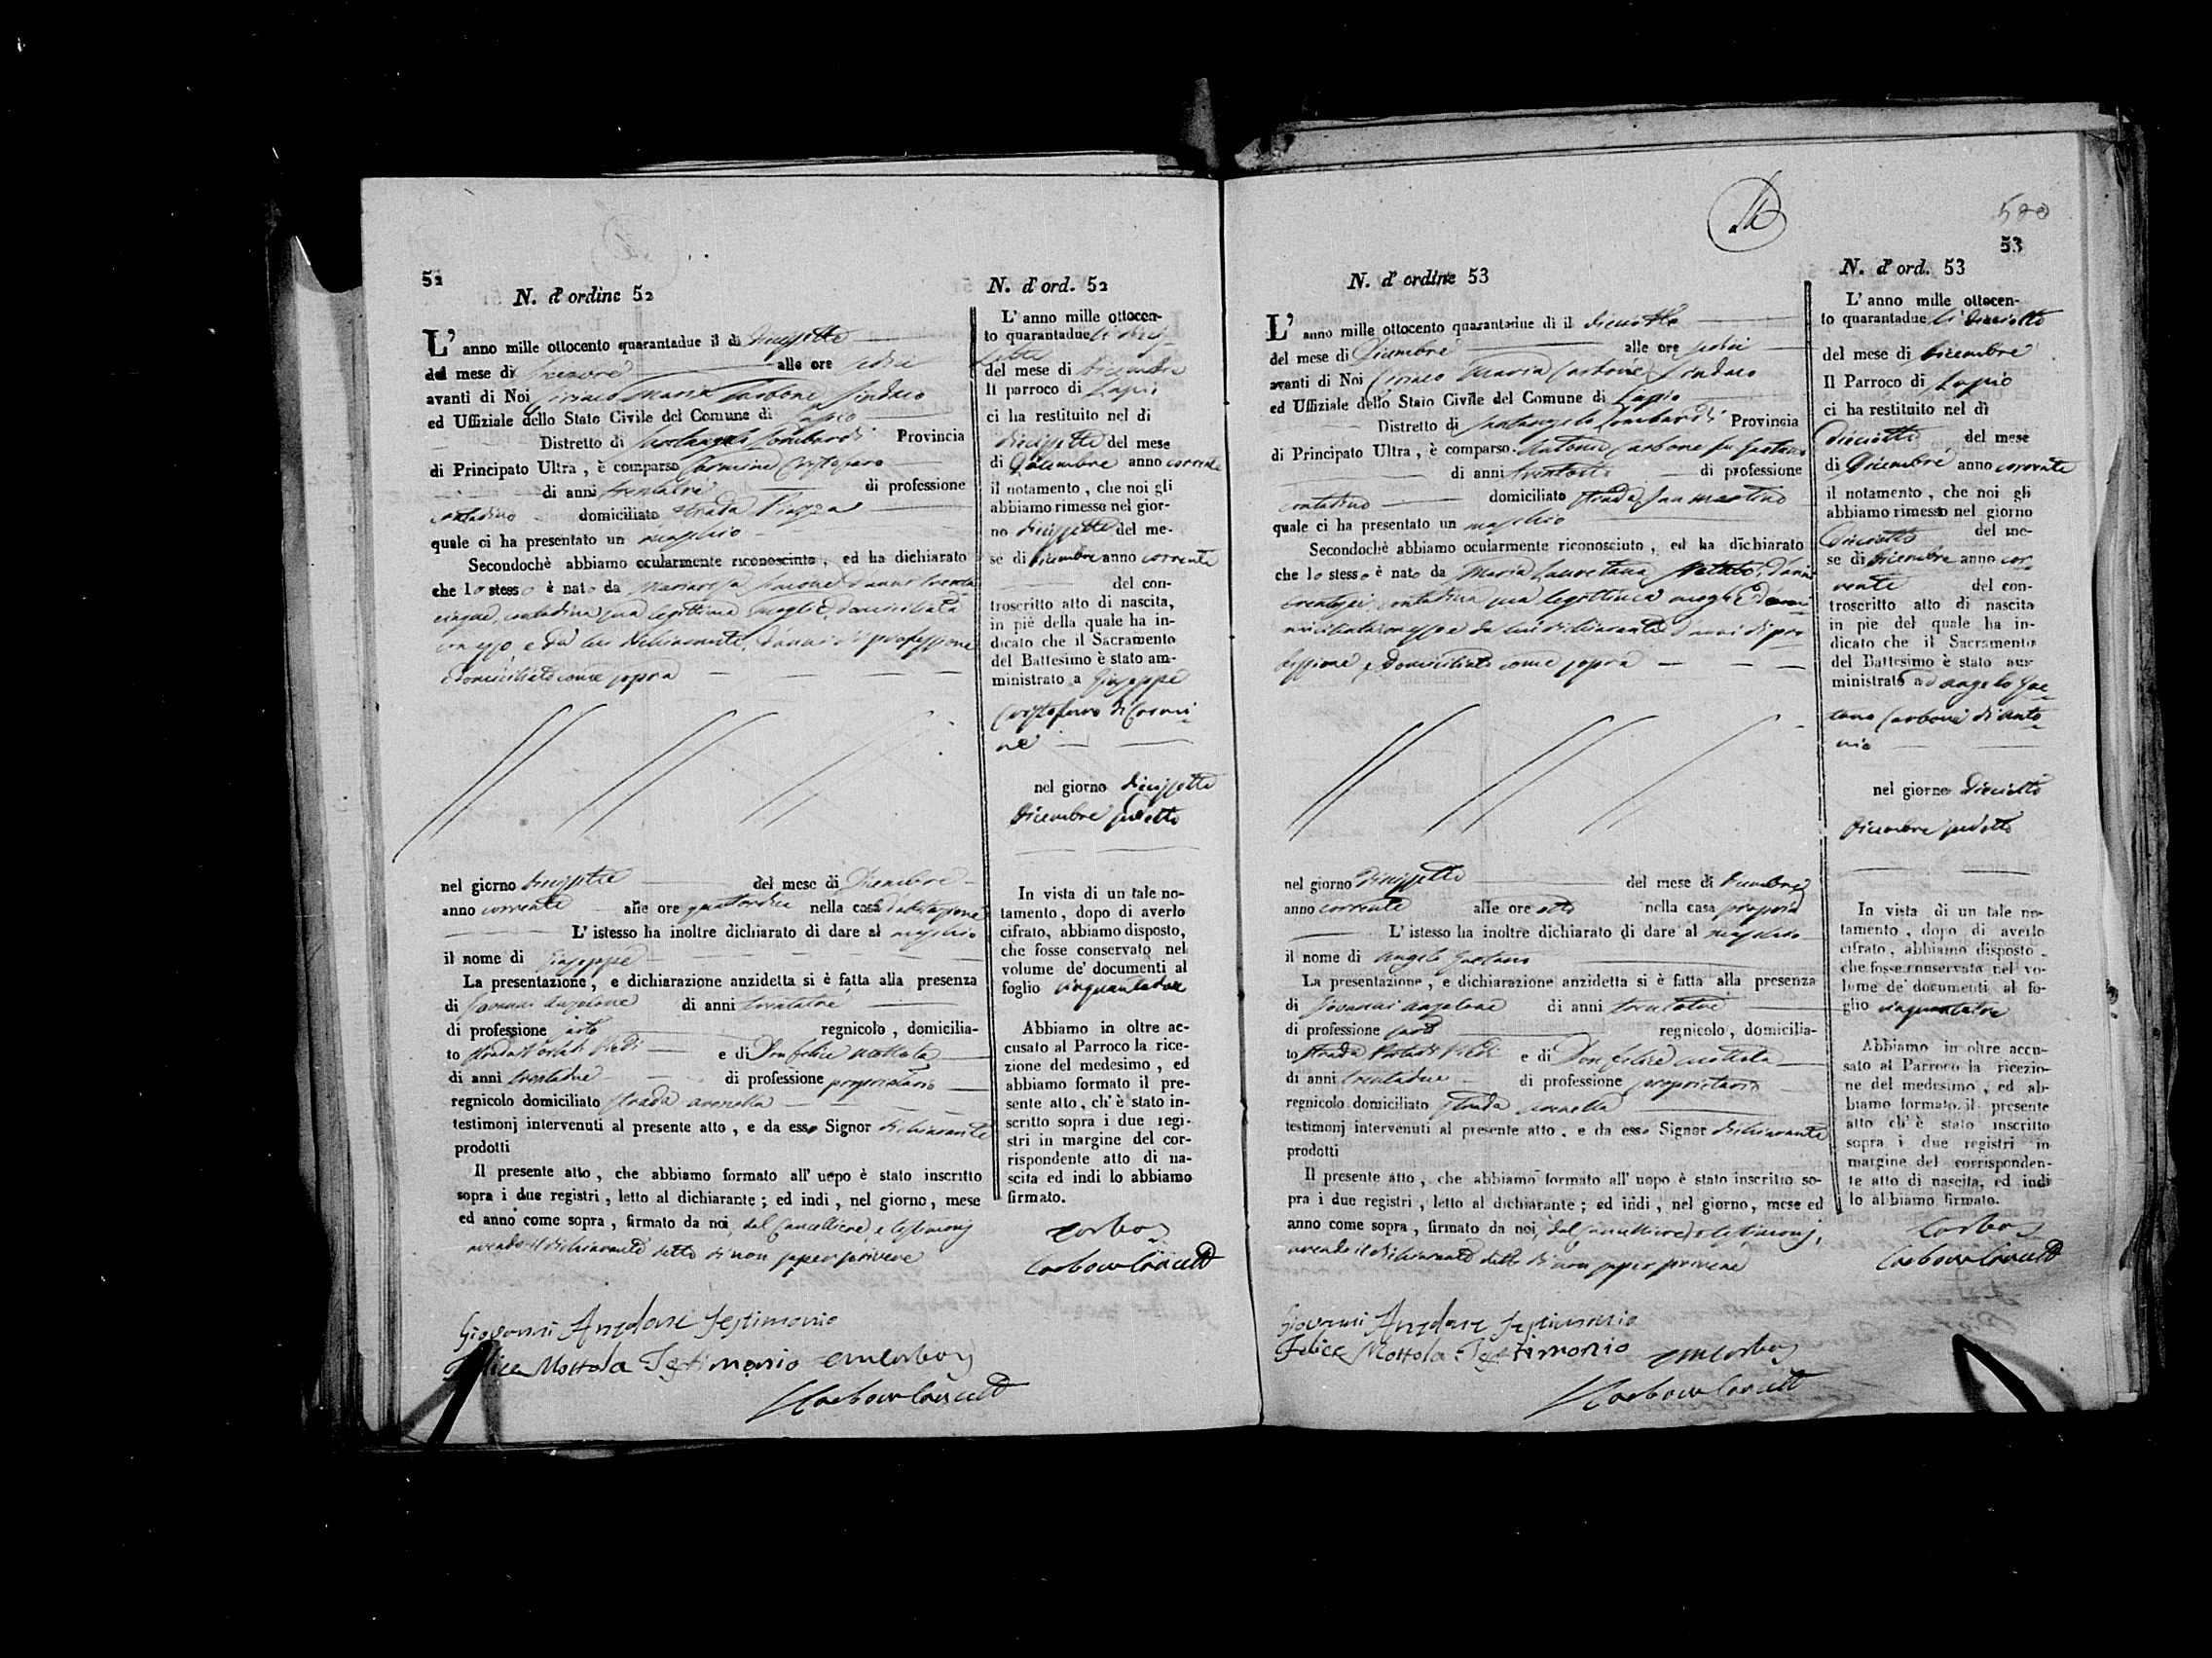 52
N. d'ordine 52
L' anno mille ottocento quarantadue il dì diciassette
del mese di Dicembre alle ore sedici
avanti di Noi Ciriaco Maria Carbone Sindaco
ed Uffiziale dello Stato Civile del Comune di Lapio
Distretto di Santangelo Lombardi Provincia
di Principato Ultra, è comparso Carmine Cristofaro
di anni trentatre di professione
contadino domiciliato strada Piazza
quale ci ha presentato un maschio
Secondochè abbiamo ocularmente riconosciuto, ed ha dichiarato
che lo stesso è nato da d'anni trenta
cinque, contadina sua legittima moglie, domiciliata
con esso, e da lui dichiarante, d'anni di professione
e domiciliato come sopra
nel giorno diciassette del mese di Dicembre
anno corrente alle ore quattordici nella casa d'abitazione
L' istesso ha inoltre dichiarato di dare al maschio
il nome di Giuseppe
La presentazione, e dichiarazione anzidetta si è fatta alla presenza
di Giovanni Anzalone di anni trentatre
di professione regnicolo, domicilia-
to strada e di Don Felice Mottola
di anni trentadue di professione proprietario
regnicolo domiciliato strada
testimonj intervenuti al presente atto, e da esso Signor dichiarante
prodotti
Il presente atto, che abbiamo formato all' uopo è stato inscritto
sopra i due registri, letto al dichiarante; ed indi, nel giorno, mese
ed anno come sopra, firmato da noi, dal Cancelliere, e testimonj
avendo il dichiarante detto di non saper scrivere
Giovanni Anzalone Testimonio
Felice Mottola Testimonio
N. d' ord. 52
L' anno mille ottocen-
to quarantadue li dicias-
sette
del mese di Dicembre
Il parroco di Lapio
ci ha restituito nel dì
diciassette del mese
di Dicembre anno corrente
il notamento, che noi gli
abbiamo rimesso nel gior-
no diciassette del me-
se di Dicembre anno corrente
del con-
troscritto atto di nascita,
in piè della quale ha in-
dicato che il Sacramento
del Battesimo è stato am-
ministrato a Giuseppe
Cristofaro di Carmi-
ne
nel giorno diciassette
Dicembre sudetto
In vista di un tale no-
tamento, dopo di averlo
cifrato, abbiamo disposto,
che fosse conservato nel
volume de' documenti al
foglio cinquantadue
Abbiamo in oltre ac-
cusato al Parroco la rice-
zione del medesimo, ed
abbiamo formato il pre-
sente atto, ch' è stato in-
scritto sopra i due regi-
stri in margine del cor-
rispondente atto di na-
scita ed indi lo abbiamo
firmato.
500
53
N. d' ordine 53
L' anno mille ottocento quarantadue di il diciotto
del mese di Dicembre alle ore sedici
avanti di Noi Ciriaco Maria Carbone Sindaco
ed Uffiziale dello Stato Civile del Comune di Lapio
Distretto di Santangelo Lombardi Provincia
di Principato Ultra, è comparso Antonio Carbone fu Gaetano
di anni di professione
contadino domiciliato strada San Martino
quale ci ha presentato un maschio
Secondochè abbiamo ocularmente riconosciuto, ed ha dichiarato
che lo stesso è nato da Maria Lauretana d'anni
trentasei contadina sua legittima moglie do-
miciliata con esso e da lui dichiarante d'anni di pro
fessione, e domiciliato come sopra
nel giorno diciassette del mese di Dicembre
anno corrente alle ore otto nella casa propria
L' istesso ha inoltre dichiarato di dare al maschio
il nome di Angelo Gaetano
La presentazione, e dichiarazione anzidetta si è fatta alla presenza
di Giovanni Anzalone di anni trentatre
di professione regnicolo, domicilia-
to strada e di Don Felice Mottola
di anni trentadue di professione proprietario
regnicolo domiciliato strada
testimonj intervenuti al presente atto, e da esso Signor dichiarante
prodotti
Il presente atto, che abbiamo formato all' uopo è stato inscritto so-
pra i due registri, letto al dichiarante; ed indi, nel giorno, mese ed
anno come sopra, firmato da noi, dal Cancelliere, e testimonj,
avendo il dichiarante detto di non saper scrivere
Giovanni Anzalone Testimonio
Felice Mottola Testimonio
N. d' ord. 53
L' anno mille ottocen-
to quarantadue li diciotto
del mese di Dicembre
Il Parroco di Lapio
ci ha restituito nel dì
diciotto del mese
di Dicembre anno corrente
il notamento, che noi gli
abbiamo rimesso nel giorno
diciotto del me-
se di Dicembre anno cor-
rente del con-
troscritto atto di nascita
in pie del quale ha in-
dicato che il Sacramento
del Battesimo è stato am-
ministrato ad Angelo Gae-
tano Carbone di Anto-
nio
nel giorno diciotto
Dicembre sudetto
In vista di un tale no-
tamento, dopo di averlo
cifrato, abbiamo disposto,
che fosse conservato nel vo-
lume de' documenti al fo-
glio cinquantatre
Abbiamo in oltre accu-
sato al Parroco la ricezio-
ne del medesimo, ed ab-
biamo formato il presente
atto ch' è stato inscritto
sopra i due registri in
margine del corrisponden-
te atto di nascita, ed indi
lo abbiamo firmato.